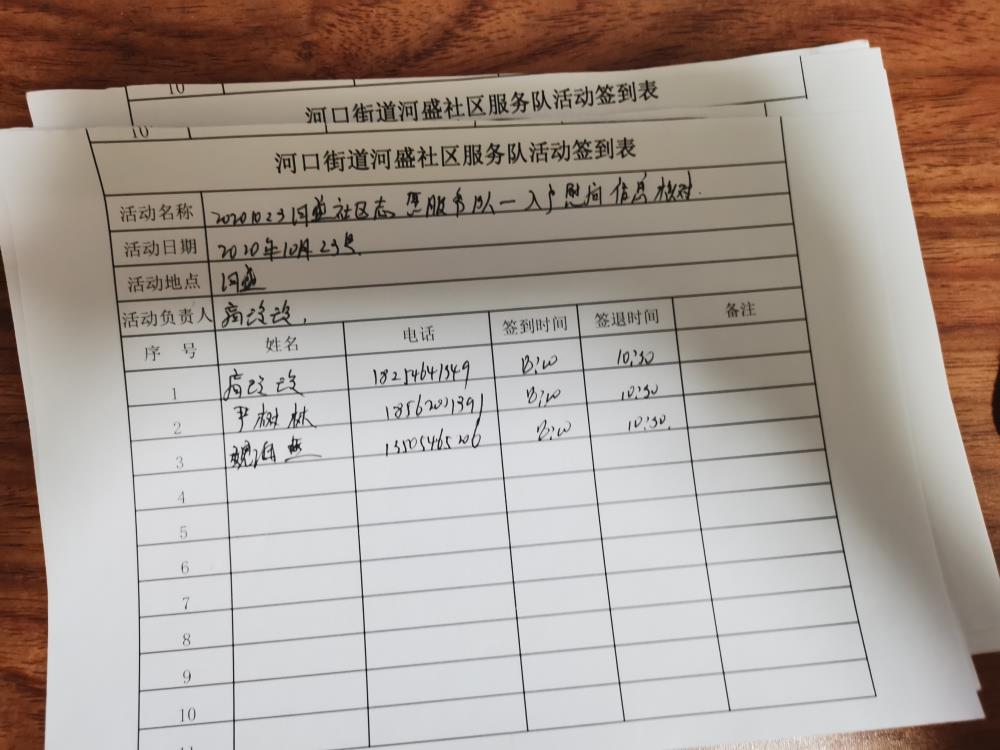 10
河口街道河盛社区服务队活动签到表
10
河口街道河盛社区服务队活动签到表
活动名称 20201023河盛社区志愿服务队一入户慰问信息核对.
活动日期 2020年10月23号.
活动地点 河盛
活动负责人
序号 姓名 电话 签到时间 签退时间 备注
1 18254641349 8:00 10:30
2 尹树林 8:00 10:30
3 8:00 10:30.
4
5
6
7
8
9
10